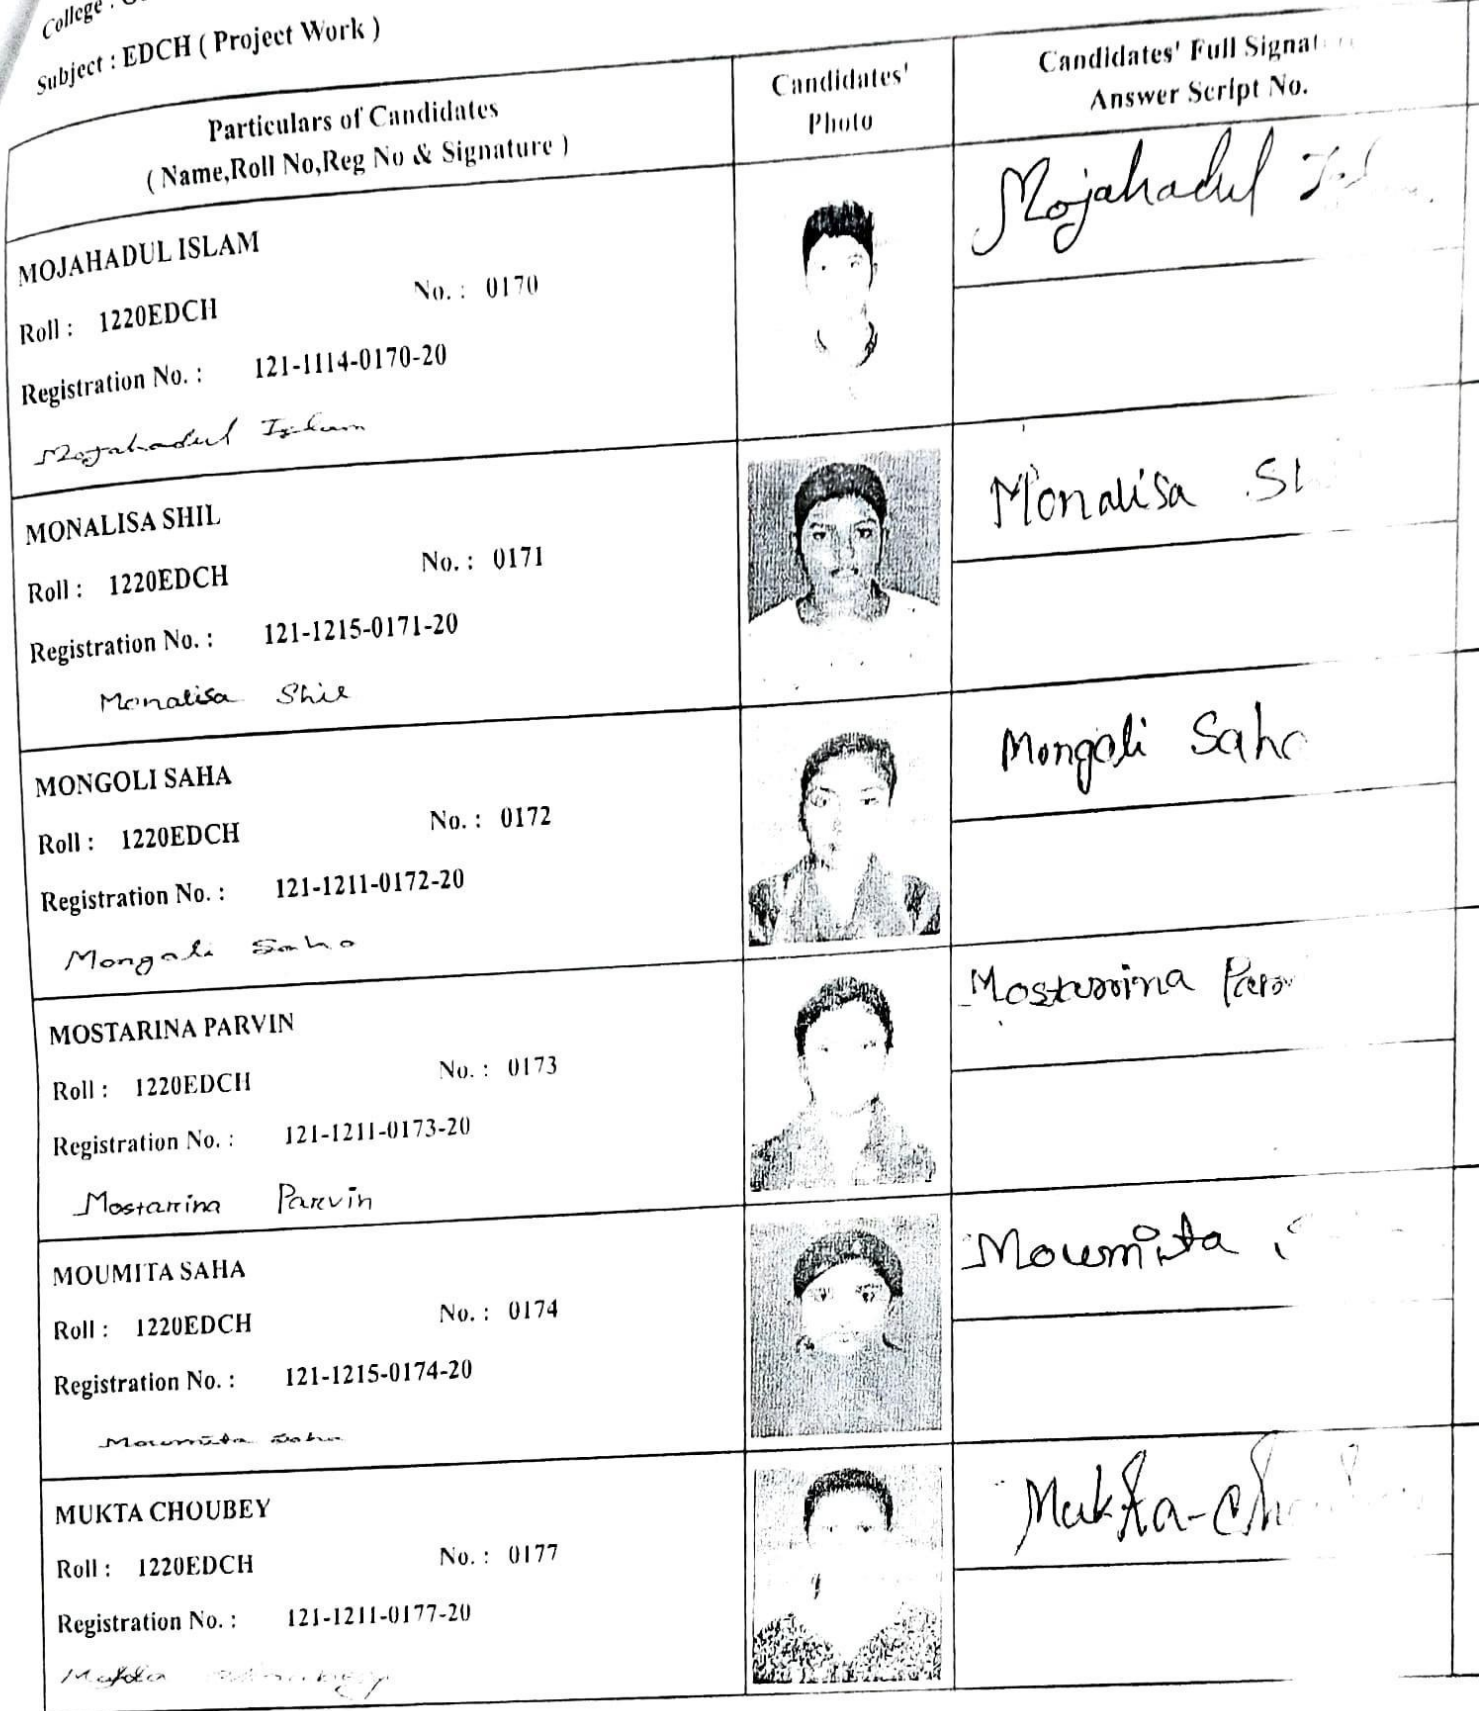 College :
Subject : EDCH ( Project Work )
Particulars of Candidates
( Name,Roll No,Reg No & Signature )
Candidates'
Photo
Candidates' Full
Answer Script No.
MOJAHADUL ISLAM
Roll : 1220EDCH No. : 0170
Registration No. : 121-1114-0170-20
Mojahadul Islam
Mojahadul
MONALISA SHIL
Roll : 1220EDCH No. : 0171
Registration No. : 121-1215-0171-20
Monalisa Shil
Monalisa
MONGOLI SAHA
Roll : 1220EDCH No. : 0172
Registration No. : 121-1211-0172-20
Mongali Saha
Mongoli Saha
MOSTARINA PARVIN
Roll : 1220EDCH No. : 0173
Registration No. : 121-1211-0173-20
Mostarina Parvin
Mostarina
MOUMITA SAHA
Roll : 1220EDCH No. : 0174
Registration No. : 121-1215-0174-20
Moumita Saha
Moumita
MUKTA CHOUBEY
Roll : 1220EDCH No. : 0177
Registration No. : 121-1211-0177-20
Mukta
Mukta